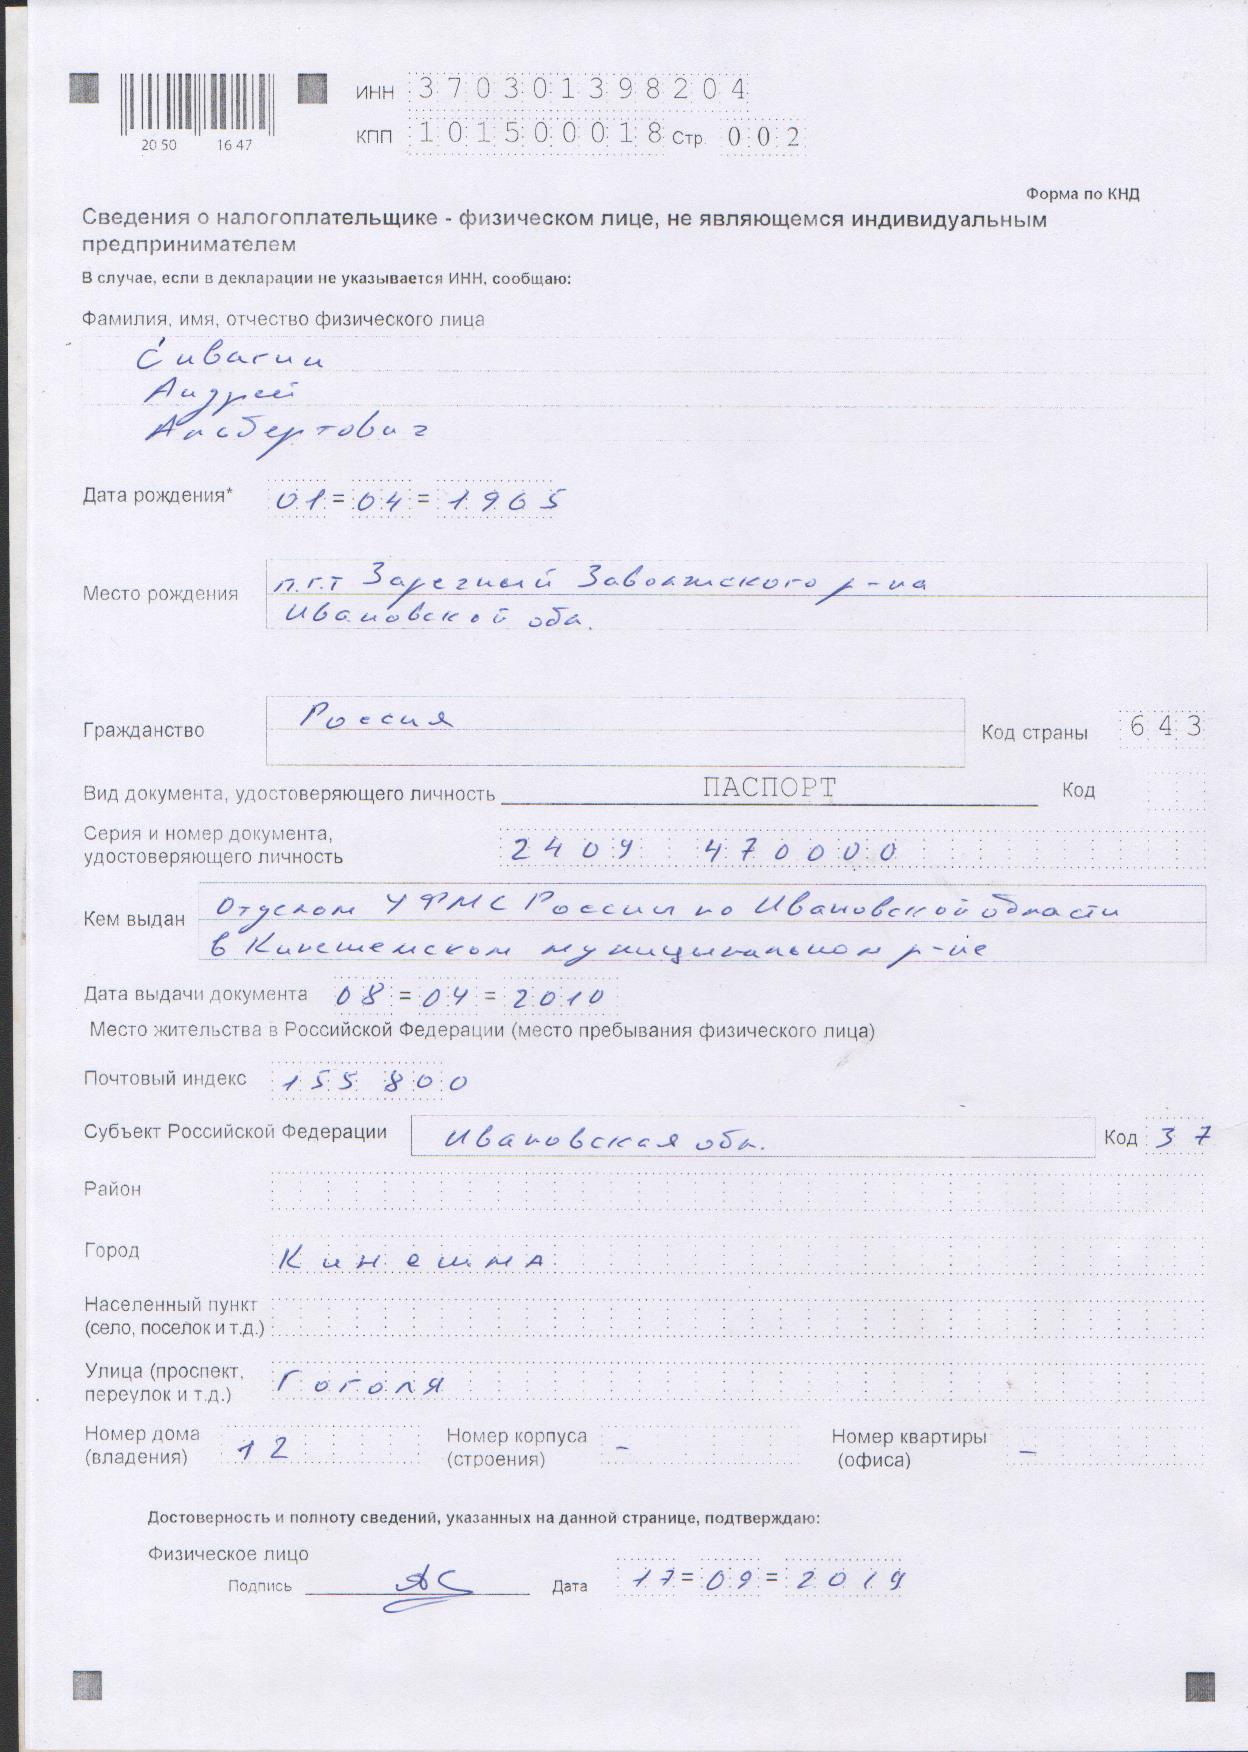 ИНН 370301398204
20 50 16 47
КПП 101500018 Стр. 002
Форма по КНД
Сведения о налогоплательщике - физическом лице, не являющемся индивидуальным
предпринимателем
В случае, если в декларации не указывается ИНН, сообщаю:
Фамилия, имя, отчество физического лица
Сивагин
Андрей
Альбертович
Дата рождения* 01 = 04 = 1965
Место рождения п.г.т Заречный Заволжского р-на
Ивановской обл.
Гражданство Россия Код страны 643
Вид документа, удостоверяющего личность ПАСПОРТ Код
Серия и номер документа,
удостоверяющего личность 2409 470000
Кем выдан Отделом УФМС России по Ивановской области
в Кинешемском муниципальном р-не
Дата выдачи документа 08 = 04 = 2010
Место жительства в Российской Федерации (место пребывания физического лица)
Почтовый индекс 155800
Субъект Российской Федерации Ивановская обл. Код 37
Район
Город Кинешма
Населенный пункт
(село, поселок и т.д.)
Улица (проспект,
переулок и т.д.) Гоголя
Номер дома
(владения) 12
Номер корпуса
(строения) -
Номер квартиры
(офиса) -
Достоверность и полноту сведений, указанных на данной странице, подтверждаю:
Физическое лицо
Подпись Дата 17 = 09 = 2019